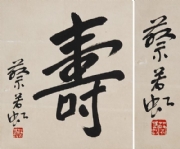 壽
蔡若虹
蔡若虹